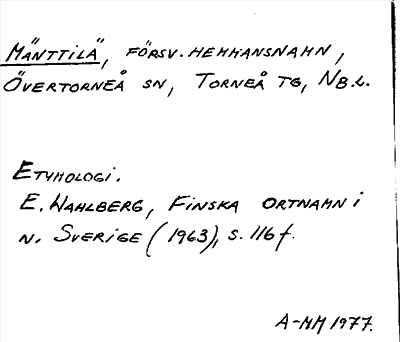 Mänttilä, försv. hemmansnamn,
Övertorneå sn, Torneå tg, Nb.l.
Etymologi.
E. Wahlberg, Finska ortnamn i
n. Sverige (1963), s. 116 f.
A-MM 1977.